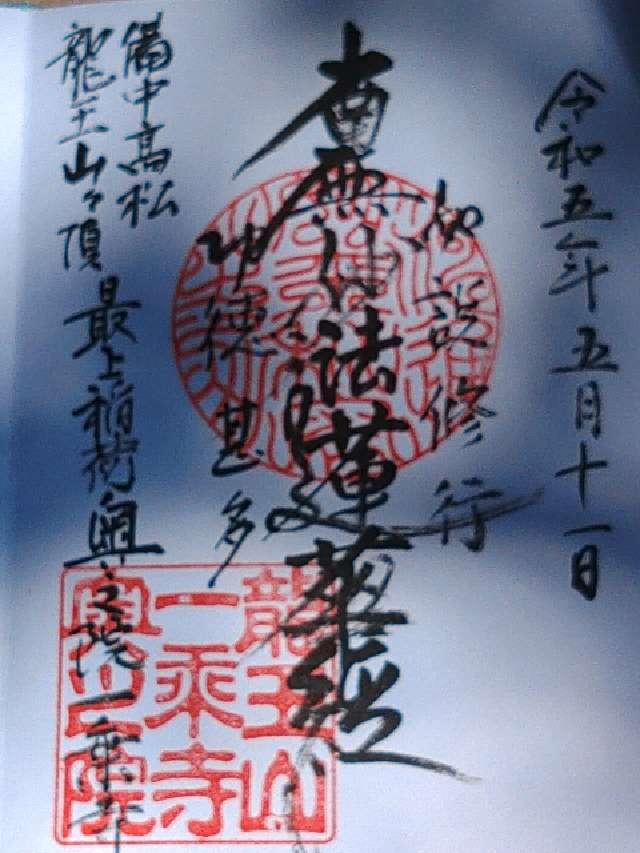 令和五年五月十一日
如説修行
南無妙法蓮華経
功徳甚多
備中高松
龍王山々頂 最上稲荷奥之院一乗寺
龍王山
一乗寺
奥之院